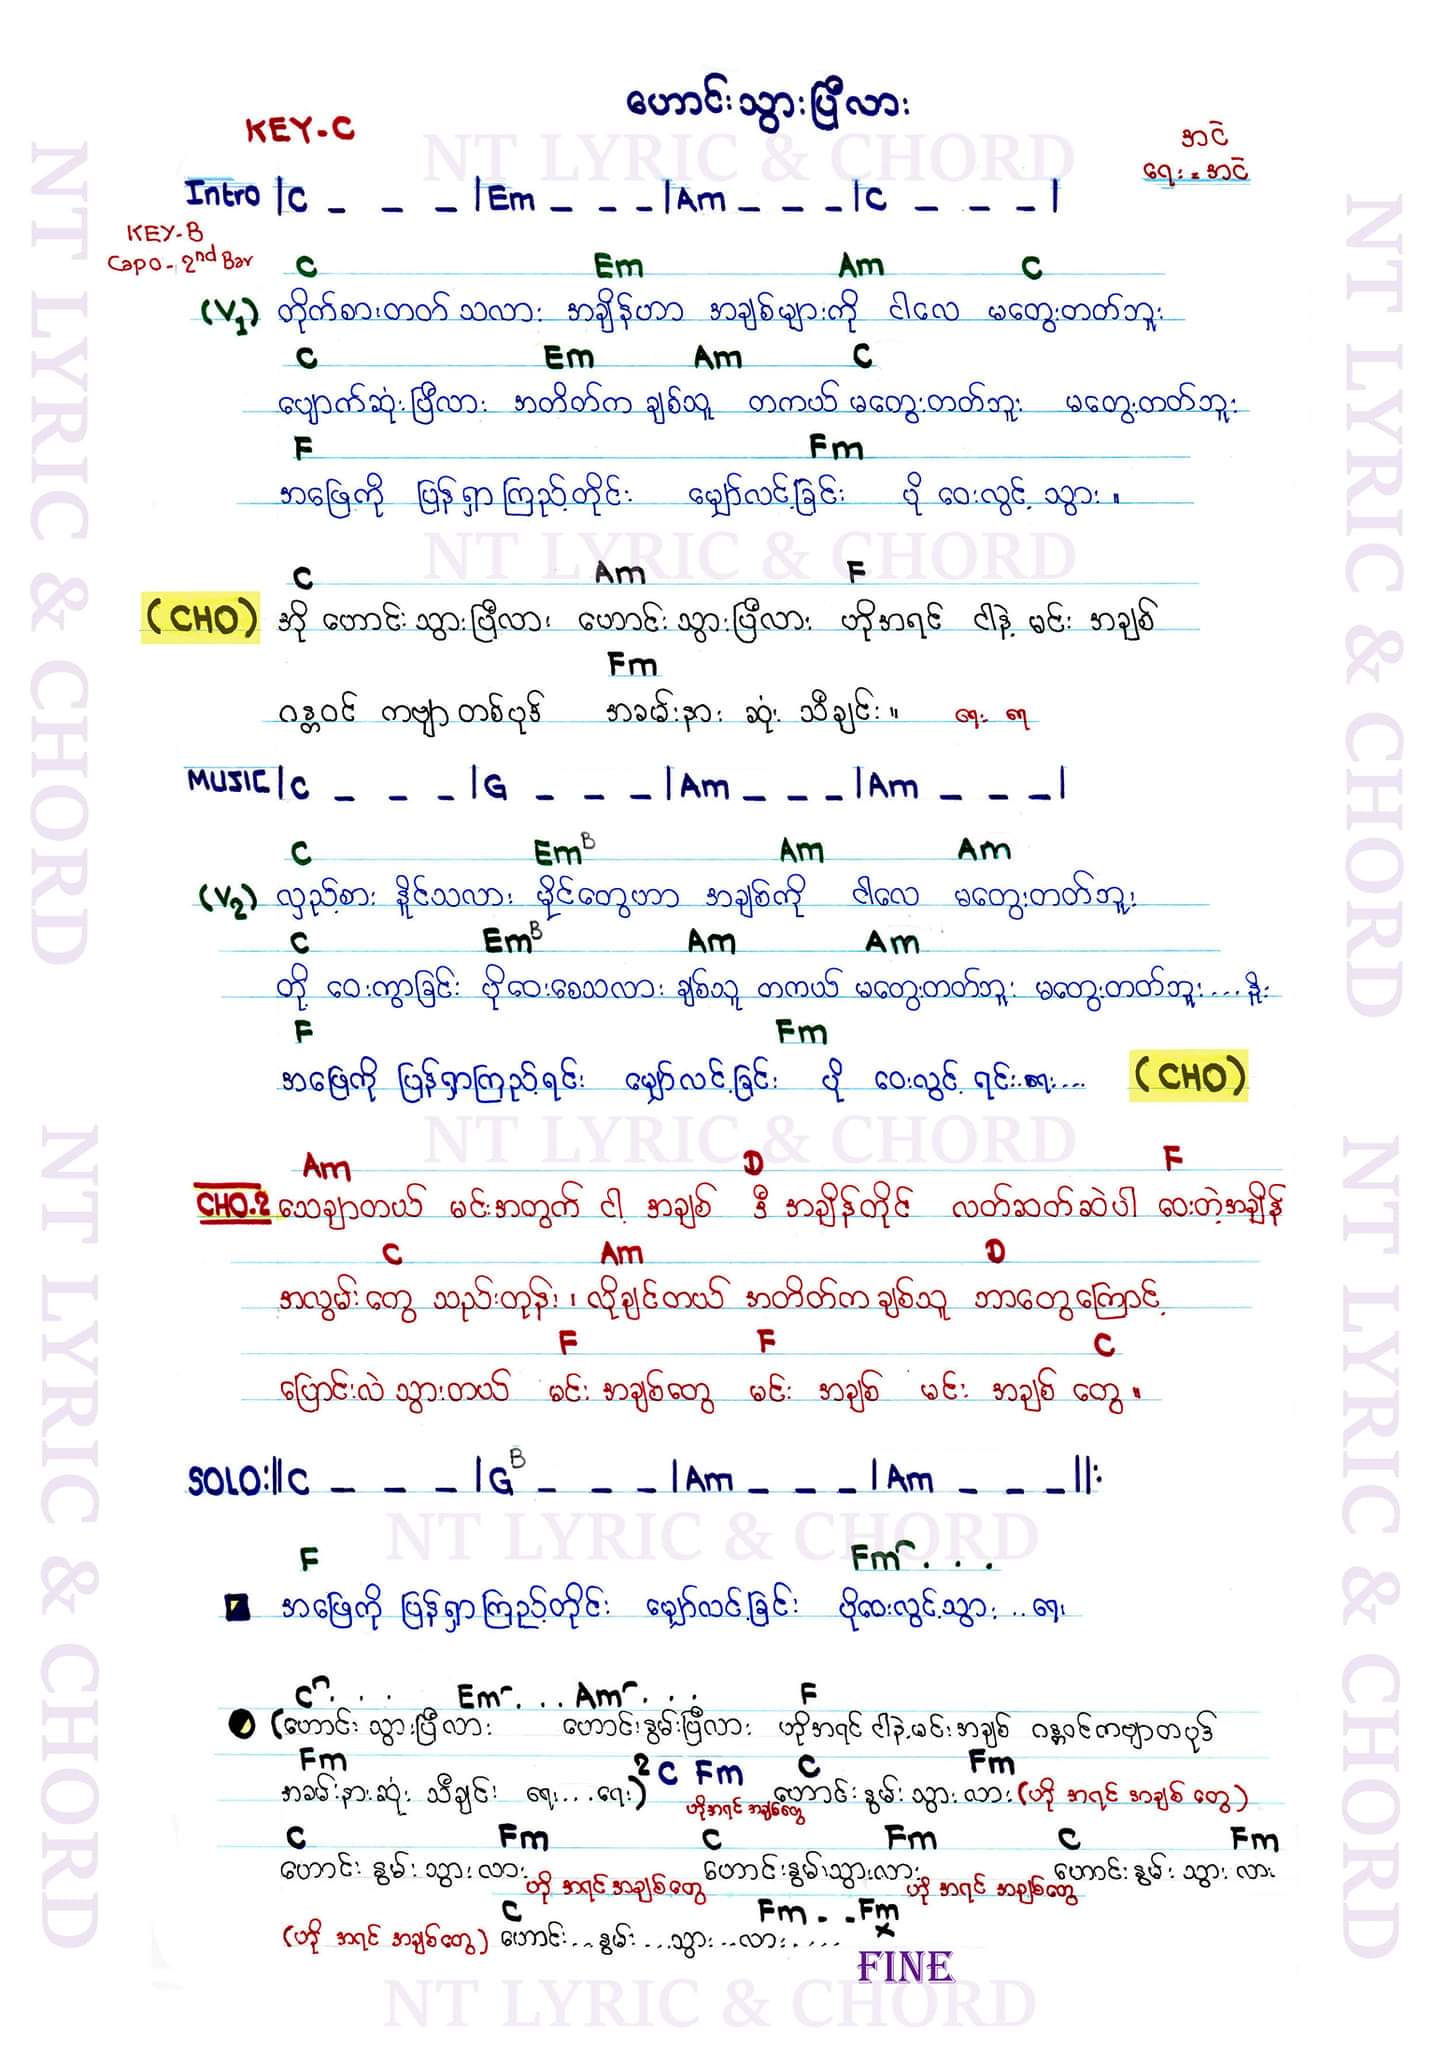 ဟောင်းသွားပြီလား
KEY-C
အငဲ
ရေး = အငဲ
Intro |C _ _ _ |Em _ _ _ |Am _ _ _ |C _ _ _ |
KEY-B
Capo - 2nd Bar
C Em Am C
(V1) တိုက်စားတတ်သလား အချိန်ဟာ အချစ်များကို ငါလေ မတွေးတတ်ဘူး
C Em Am C
ပျောက်ဆုံးပြီလား အတိတ်က ချစ်သူ တကယ် မတွေးတတ်ဘူး မတွေးတတ်ဘူး
F Fm
အဖြေကို ပြန်ရှာကြည့်တိုင်း မျှော်လင့်ခြင်း ပို ဝေးလွင့် သွား ။
C Am F
(CHO) အို ဟောင်းသွားပြီလား ဟောင်းသွားပြီလား ဟိုအရင် ငါနဲ့ မင်း အချစ်
Fm
ဂန္တဝင် ကဗျာတစ်ပုဒ် အခမ်းနား ဆုံး သီချင်း ။
MUSIC |C _ _ _ |G _ _ _ |Am _ _ _ |Am _ _ _ |
C EmB Am Am
(V2) လှည့်စား နိူင်သလား မိုင်တွေဟာ အချစ်ကို ငါလေ မတွေးတတ်ဘူး
C EmB Am Am
တို့ ဝေးကွာခြင်း ပိုဝေးစေသလား ချစ်သူ တကယ် မတွေးတတ်ဘူး မတွေးတတ်ဘူး....နိူး
F Fm
အဖြေကို ပြန်ရှာကြည့်ရင်း မျှော်လင့်ခြင်း ပို ဝေးလွင့် ရင်း (CHO)
Am D F
CHO.2 သေချာတယ် မင်းအတွက် ငါ့ အချစ် ဒီ အချိန်တိုင် လတ်ဆတ်ဆဲပါ ဝေးတဲ့အချိန်
C Am D
အလွမ်းတွေ သည်းတုန်း၊ လိုချင်တယ် အတိတ်က ချစ်သူ ဘာတွေကြောင့်
F F C
ပြောင်းလဲ သွားတယ် မင်း အချစ်တွေ မင်း အချစ် မင်း အချစ် တွေ ။
SOLO:||C _ _ _ |GB _ _ _ |Am _ _ _ |Am _ _ _||:
F Fm . . .
အဖြေကို ပြန်ရှာကြည့်တိုင်း မျှော်လင့်ခြင်း ပိုဝေးလွင့်သွား
C . . . Em . . . Am . . . F
(ဟောင်းသွားပြီလား ဟောင်းနွမ်းပြီလား ဟိုအရင် ငါနဲ့မင်းအချစ် ဂန္တဝင်ကဗျာတပုဒ်
Fm 2 C Fm C Fm
အခမ်းနားဆုံး သီချင်း ရေး...ရေး) ဟိုအရင် အချစ်တွေ ဟောင်းနွမ်း သွား လား (ဟို အရင် အချစ် တွေ)
C Fm C Fm C Fm
ဟောင်း နွမ်း သွား လား ဟို အရင် အချစ်တွေ ဟောင်းနွမ်းသွားလား ဟို အရင် အချစ်တွေ ဟောင်း နွမ်း သွား လား
C Fm . . Fm
(ဟို အရင် အချစ်တွေ) ဟောင်း...နွမ်း...သွား...လား....
FINE
NT LYRIC & CHORD
NT LYRIC & CHORD
NT LYRIC & CHORD
NT LYRIC & CHORD
NT LYRIC & CHORD
NT LYRIC & CHORD
NT LYRIC & CHORD
NT LYRIC & CHORD
NT LYRIC & CHORD